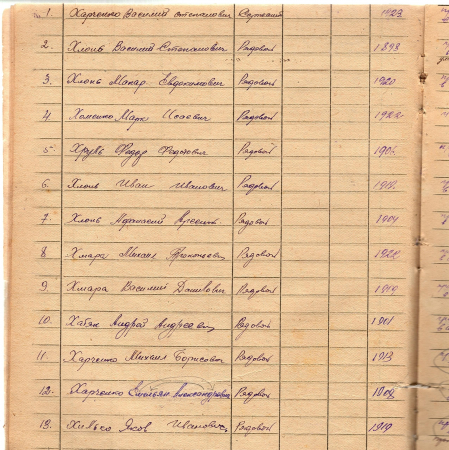 1. Харченко Василий Степанович Сержант 1923
2. Хлонь Василий Степанович Рядовой 1898
3. Хлонь Макар Евдокимович Рядовой 1920
4 Хоменко Марк Исаевич Рядовой 1922
5 Федор Федотович Рядовой
6. Хлонь Иван Иванович Рядовой
7. Хлонь Афанасий Рядовой 1904
8 Хмара Михаил Прокопьевич Рядовой 1922
9. Хмара Василий Данилович Рядовой 1919
10. Андрей Андреевич Рядовой 1901
11. Харченко Михаил Борисович Рядовой 1913
12. Харченко Емельян Александрович Рядовой
13. Хилько Яков Иванович Рядовой 1919